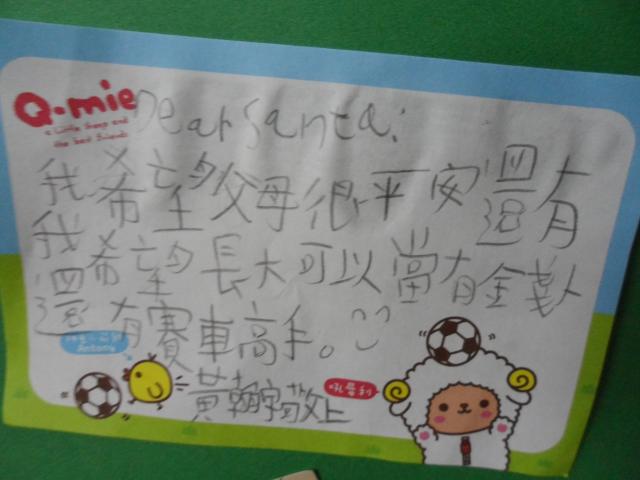 Q-mie
a little sheep and
the best friends
Dear Santa:
我希望父母很平安還有
我希望長大可以當有金錢人
還有賽車高手。
黃翰宇敬上
Antony